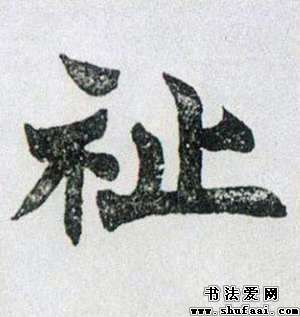 祉
书法爱网
www.shufaai.com